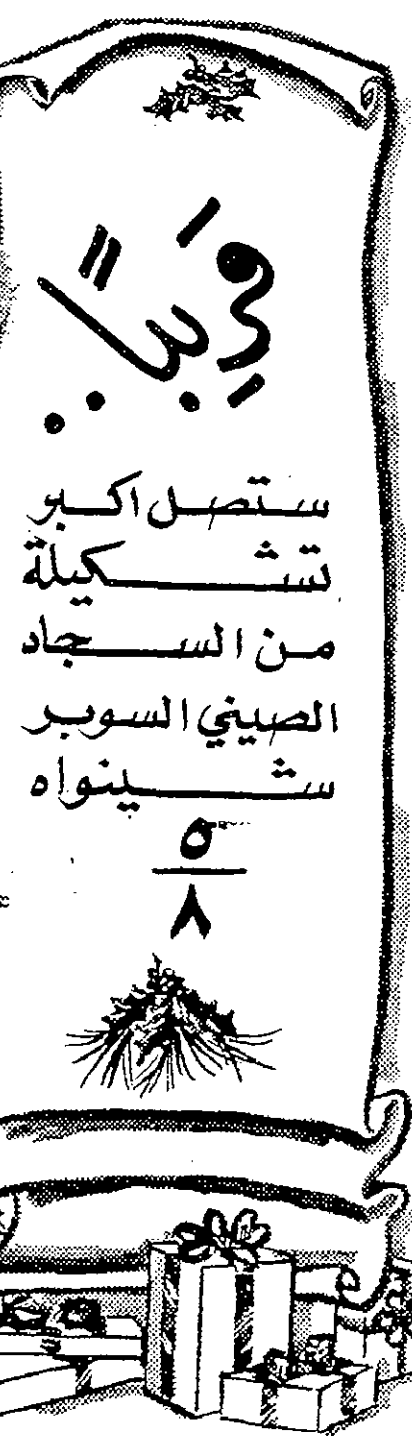 قَرِيبًا..
ستصل اكبر
تشكيلة
من السجاد
الصيني السوبر
شينواه
٥
٨